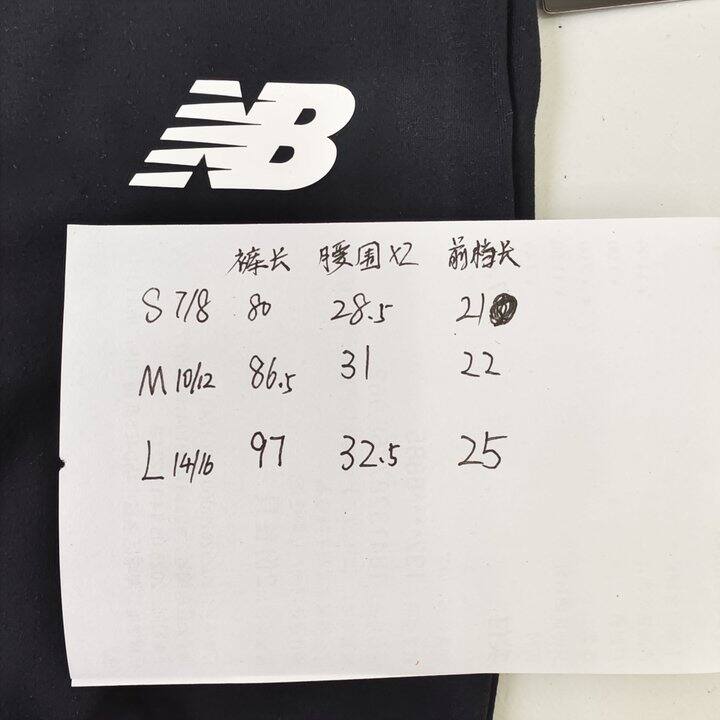 NB
裤长 腰围 X2 前档长
S 7/8 80 28.5 21
M 10/12 86.5 31 22
L 14/16 97 32.5 25